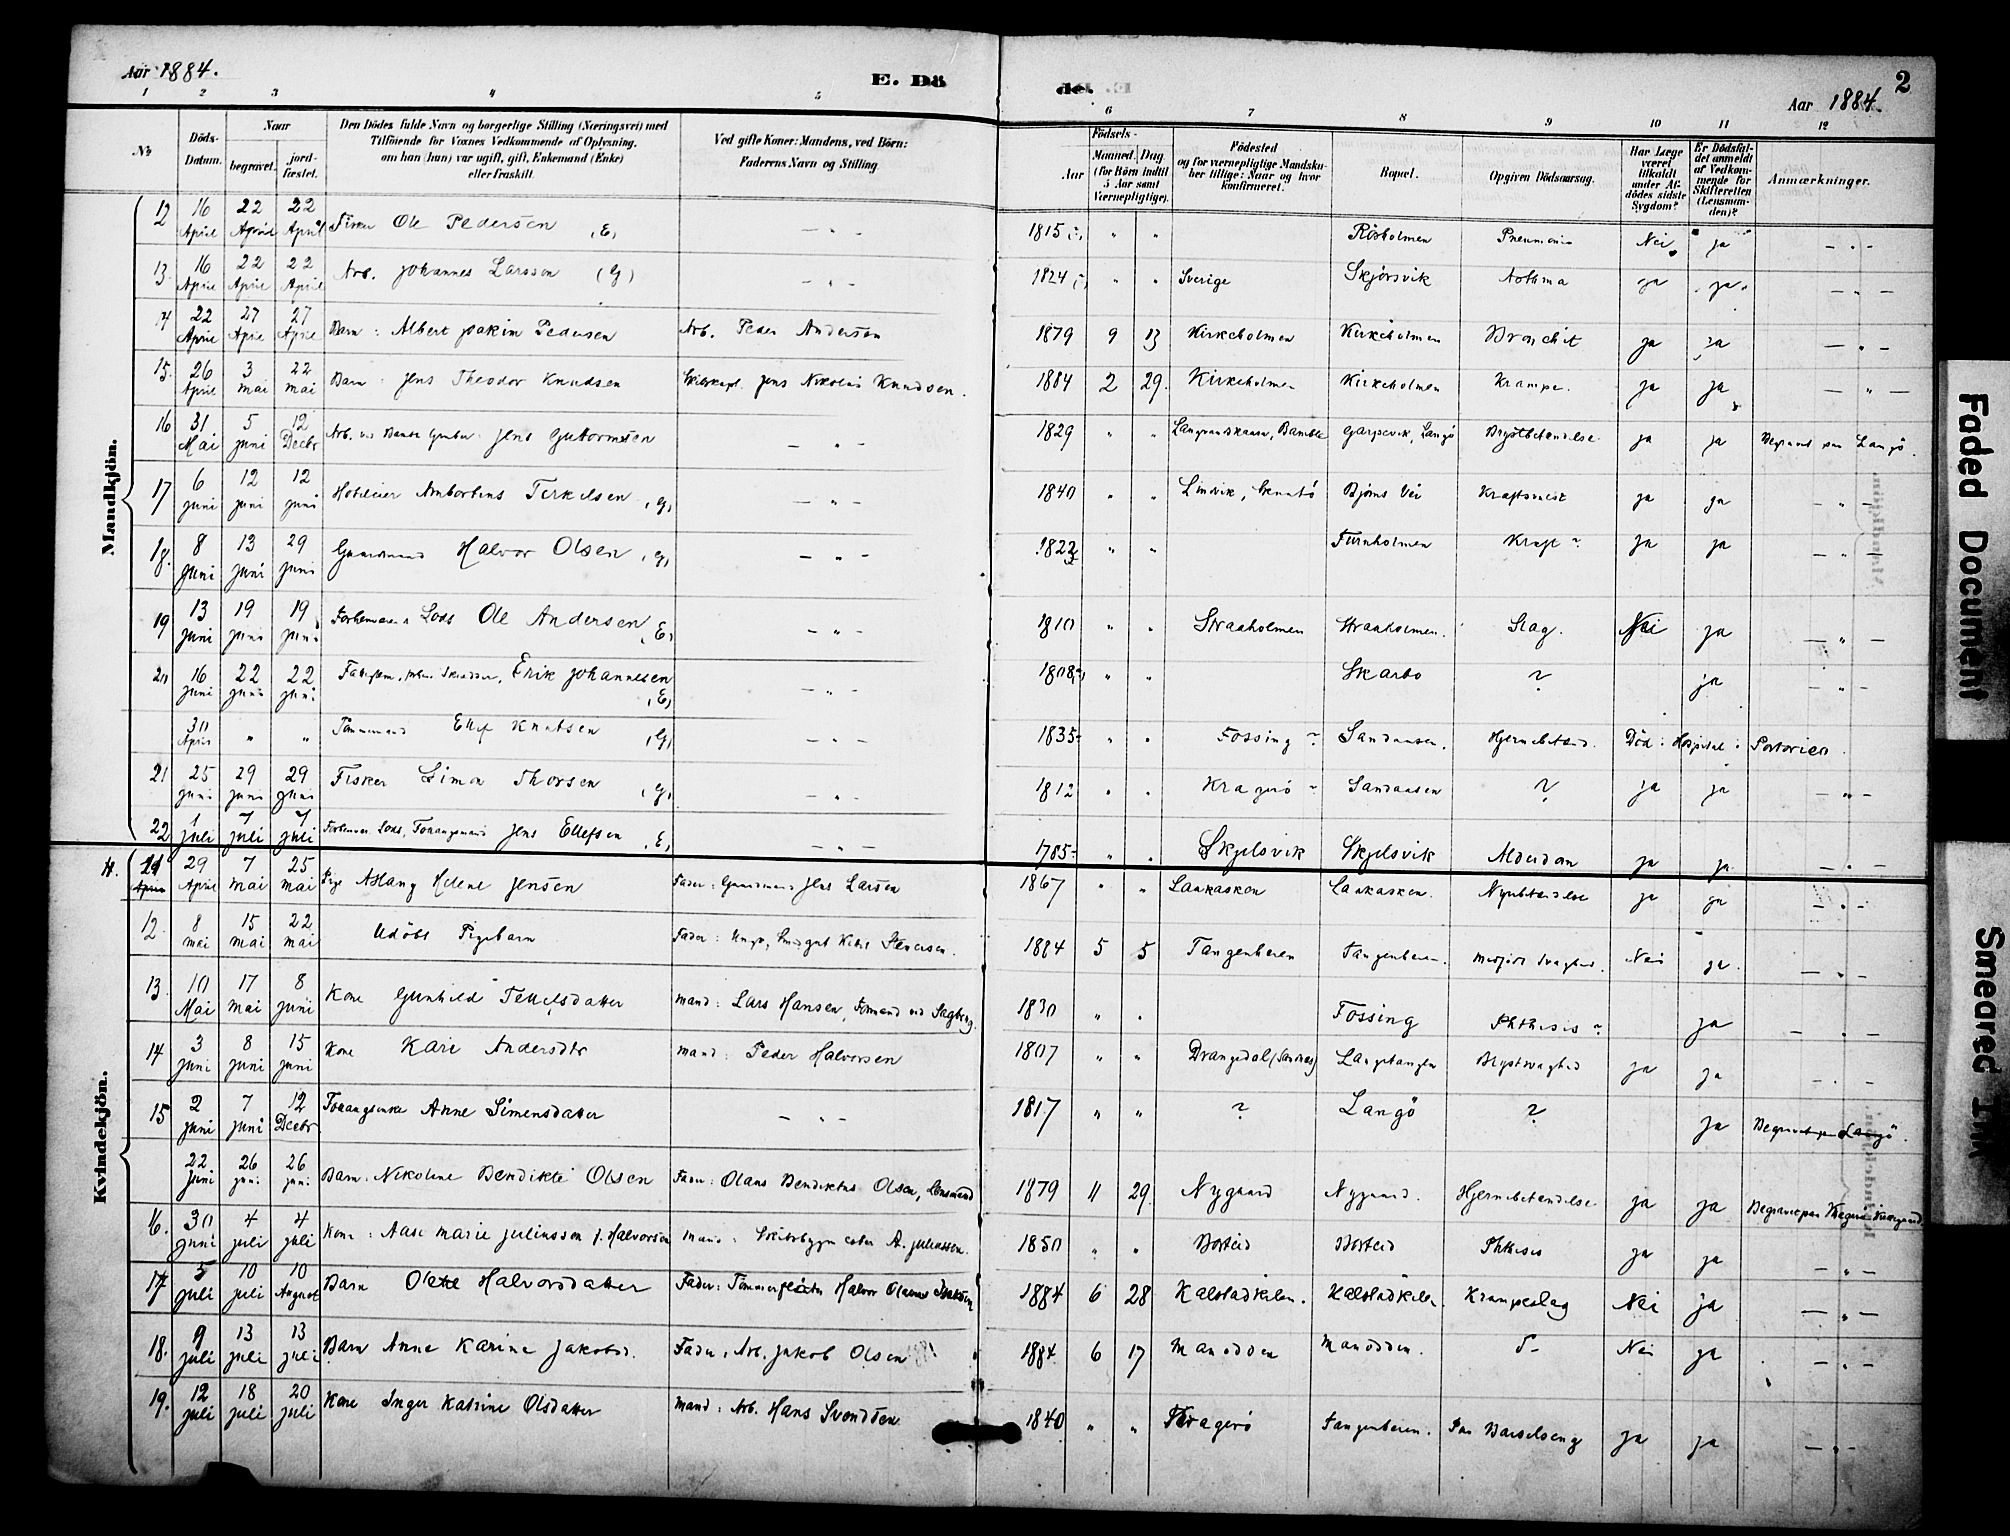 Aar 1884. E. Dö
de. Aar 1884. 2
1 2 3 4 5 6 7 8 9 10 11 12
No Döds-Datum. Naar begravet. jord-fæstet. Den Dödes fulde Navn og borgerlige Stilling (Næringsvei) med Tilföiende for Voxnes Vedkommende af Oplysning, om han (hun) var ugift, gift, Enkemand (Enke) eller fraskilt. Ved gifte Koner: Mandens, ved Börn: Faderens Navn og Stilling. Födsels- Aar Maaned. Dag (for Börn indtil 5 Aar samt Værnepligtige). Födested og for værnepligtige Mandska-ber tillige: Naar og hvor konfirmeret. Bopæl. Opgiven Dödsaarsag. Har Læge været tilkaldt under Af-dödes sidste Sygdom? Er Dödsfal-det anmeldt af Vedkom-mende for Skifteretten (Lensman-den)? Anmærkninger.
Mandkjön.
12 16 April 22 April 22 April Fisker Ole Pedersen (E) — " — 1815 " " Rösholmen Pneumoni Nei ja — " —
13. 16 April 22 April 22 April Arb. Johannes Larsson (G) — " — 1824 " " Sverige Skjörsvik Asthma ja ja — " —
14 22 April 27 April 27 April Barn: Albert Joakim Pedersen Arb. Peder Andersen 1879 9 13 Kirkeholmen Kirkeholmen Bronchit ja ja — " —
15. 26 April 3 Mai 22 Mai Barn: Jens Theodor Knudsen Jens Nikolai Knudsen. 1884 2 29. Kirkeholmen Kirkeholmen Krampe. ja ja — " —
16 31 Mai 5 Juni 12 Decbr Arb. ved Jens Guttormsen — " — 1829 " " Bamble Langö Brystbetændelse ja ja Begravet paa Langö.
17 6 Juni 12 Juni 12 Juni Hoteleier Terkelsen (G) — " — 1840 " " Björns Vei ja ja — " —
18. 8 Juni 13 Juni 29 Juni Gaardmand Halvor Olsen (G) — " — 1822 " " Furuholmen Kræft ? ja ja — " —
19 13 Juni 19 Juni 19 Juni Forhenværen Lods Ole Andersen (E) — " — 1810 " " Straaholmen Straaholmen. Slag. Nei ja — " —
20 16 Juni 22 Juni 22 Juni Erik Johannesen (E) — " — 1808 " " Skarbo ? ja — " —
30 April " " Tömmermand Ellef Knutsen (G) — " — 1835 " " Fossing ? Sandaasen. Död i Hospital i Portorico.
21 25 Juni 29 Juni 29 Juni Fisker Simon Thorsen (G) — " — 1812 " " Kragerö Sandaasen ? ja ja — " —
22 1 Juli 7 Juli 7 Juli Forhenvær. Lods, Jens Ellefsen (E) — " — 1785 " " Skjelsvik Skjelsvik Alderdom ja ja — " —
Kvindekjön.
11. 29 April 7 Mai 25 Mai Pige Aslaug Helene Jensen Fader: Gaardmand Jens Larsen 1867 " " ja ja — " —
12. 8 Mai 15 Mai 22 Mai Udöbt Pigebarn Fader: 1884 5 5 Tangenheien Tangenheien. Nei ja. — " —
13. 10 Mai 17 Mai 8 Juni Kone Gunhild Mand: Lars Hansen, Formand ved 1830 " " Fossing Phthisis ? ja — " —
14 3 Juni 8 Juni 15 Juni Kone Kari Andersdtr Mand: Peder Halvorsen 1807 " " Drangedal Langetangen ja ja — " —
15 2 Juni 7 Juni 12 Decbr Anne Simensdatter — " — 1817 " " ? Langö ? ja Begravet paa Langö.
22 Juni 26 Juni 26 Juni Barn: Nikoline Bendikte Olsen Fader: Olaus Bendiktus Olsen, Lensmand 1879 11 29. Nygaard Nygaard. Hjernebetændelse ja ja Begravet paa Kragerö Kirkegaard.
16. 30 Juni 4 Juli 4 Juli Kone: Aase Marie Juliussen f. Halvorsen Mand: A. Juliussen. 1850 " " Phthisis ja ja — " —
17 5 Juli 10 Juli 10 August Barn Halvorsdatter Fader: Halvor Olaus 1884 6 28 Kalstadkilen. Kalstadkilen Krampeslag Nei ja — " —
18. 9 Juli 13 Juli 13 Juli Barn Anne Karine Jakobsd. Fader, Arb. Jakob Olsen 1884 6 17 Manodden Manodden. Nei ja — " —
19. 12 Juli 18 Juli 20 Juli Kone Inger Katrine Olsdatter Mand: Arb. Hans 1840 " " Kragerö Tangenheien. Paa Barselseng ja ja — " —
Faded Document
Smeared Ink